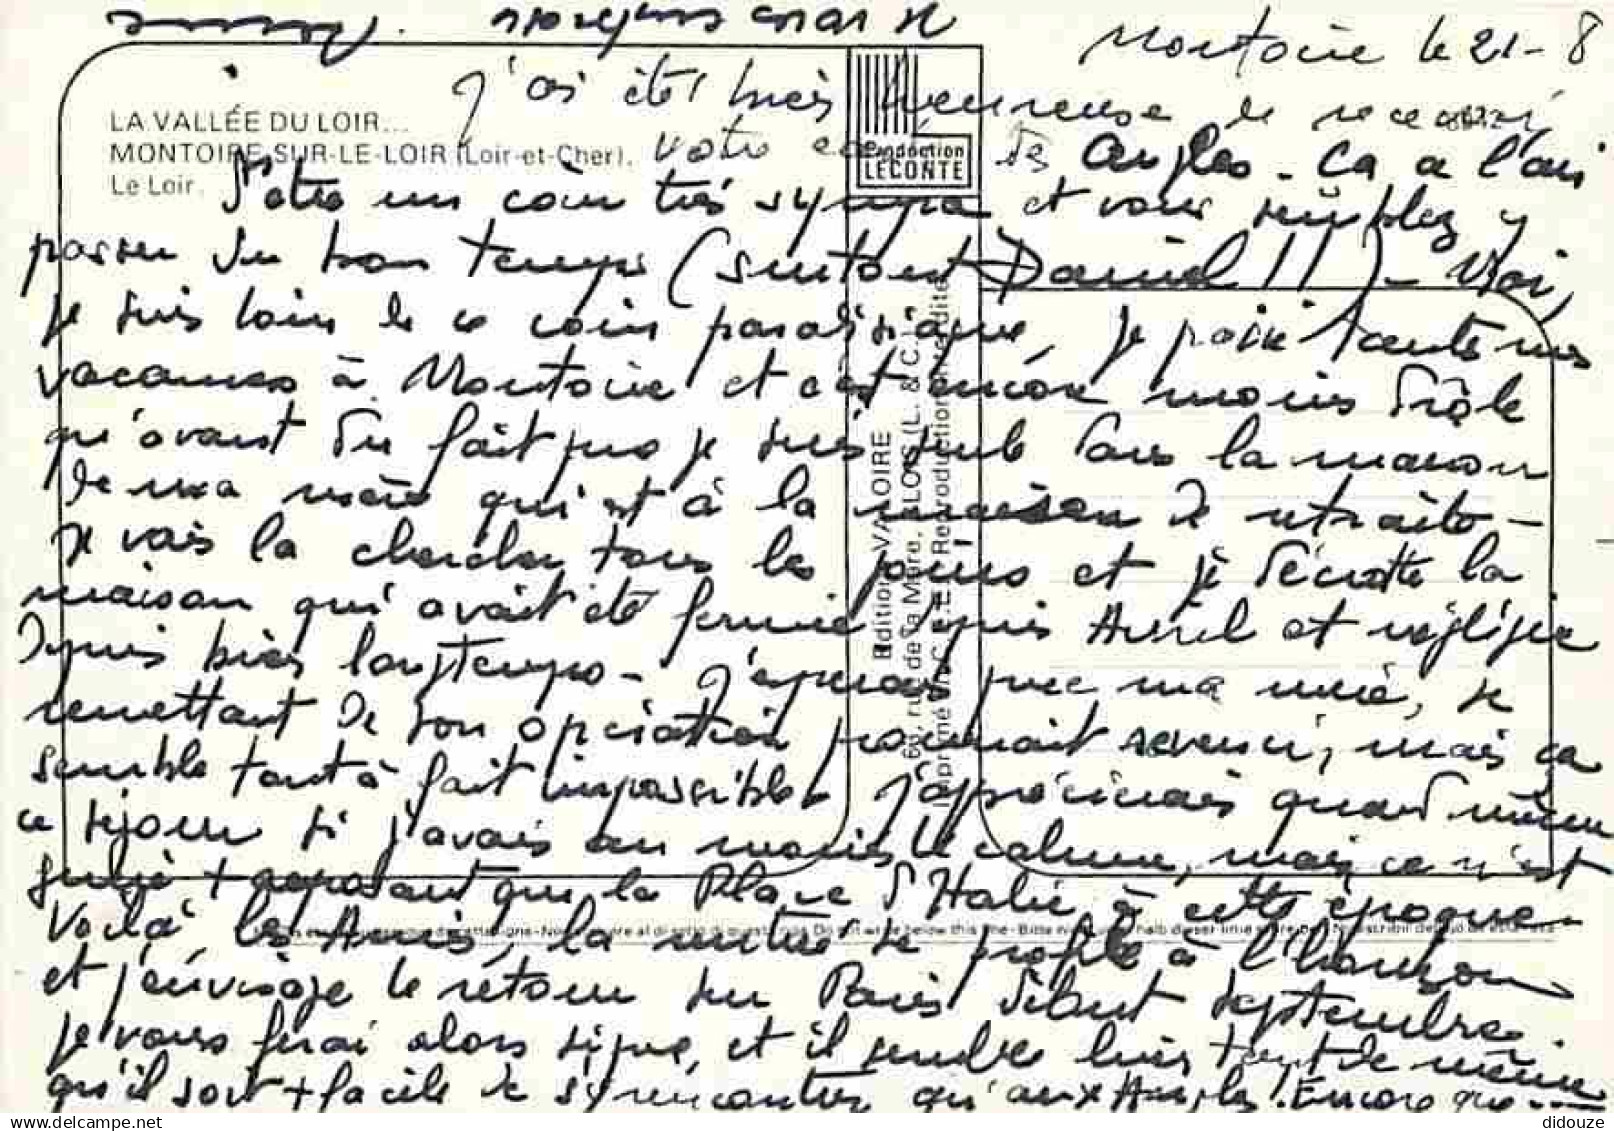 Montoire le 21-8
J'ai été très heureuse de recevoir
votre carte des Angles. Ça a l'air
d'être un coin très sympa et vous semblez y
passer du bon temps (surtout Daniel !!) - Moi,
je suis loin de ce coin paradisiaque, je passe toutes mes
vacances à Montoire et c'est encore moins drôle
qu'avant du fait que je suis seule dans la maison
de ma mère qui est à la maison de retraite -
Je vais la chercher tous les jours et je décrotte la
maison qui avait été fermée depuis Avril et négligée
depuis bien longtemps - J'espérais que ma mère, se
remettant de son opération pourrait revenir, mais ça
semble tout à fait impossible. J'apprécierais quand même
ce séjour si j'avais au moins le calme, mais ce n'est
guère + reposant que la Place d'Italie à cette époque -
Voilà les Amis, la rentrée se profile à l'horizon
et j'envisage le retour sur Paris début septembre.
Je vous ferai alors signe, et il semble bien tout de même
qu'il soit + facile de s'y rencontrer qu'aux Angles. Encore que ---
A vous
LA VALLÉE DU LOIR...
MONTOIRE-SUR-LE-LOIR (Loir-et-Cher).
Le Loir.
Production
LECONTE
Editions VALOIRE
rue de la Mare, BLOIS (L. & C.)
Imprimé C.E.E. Reproduction interdite
didouze